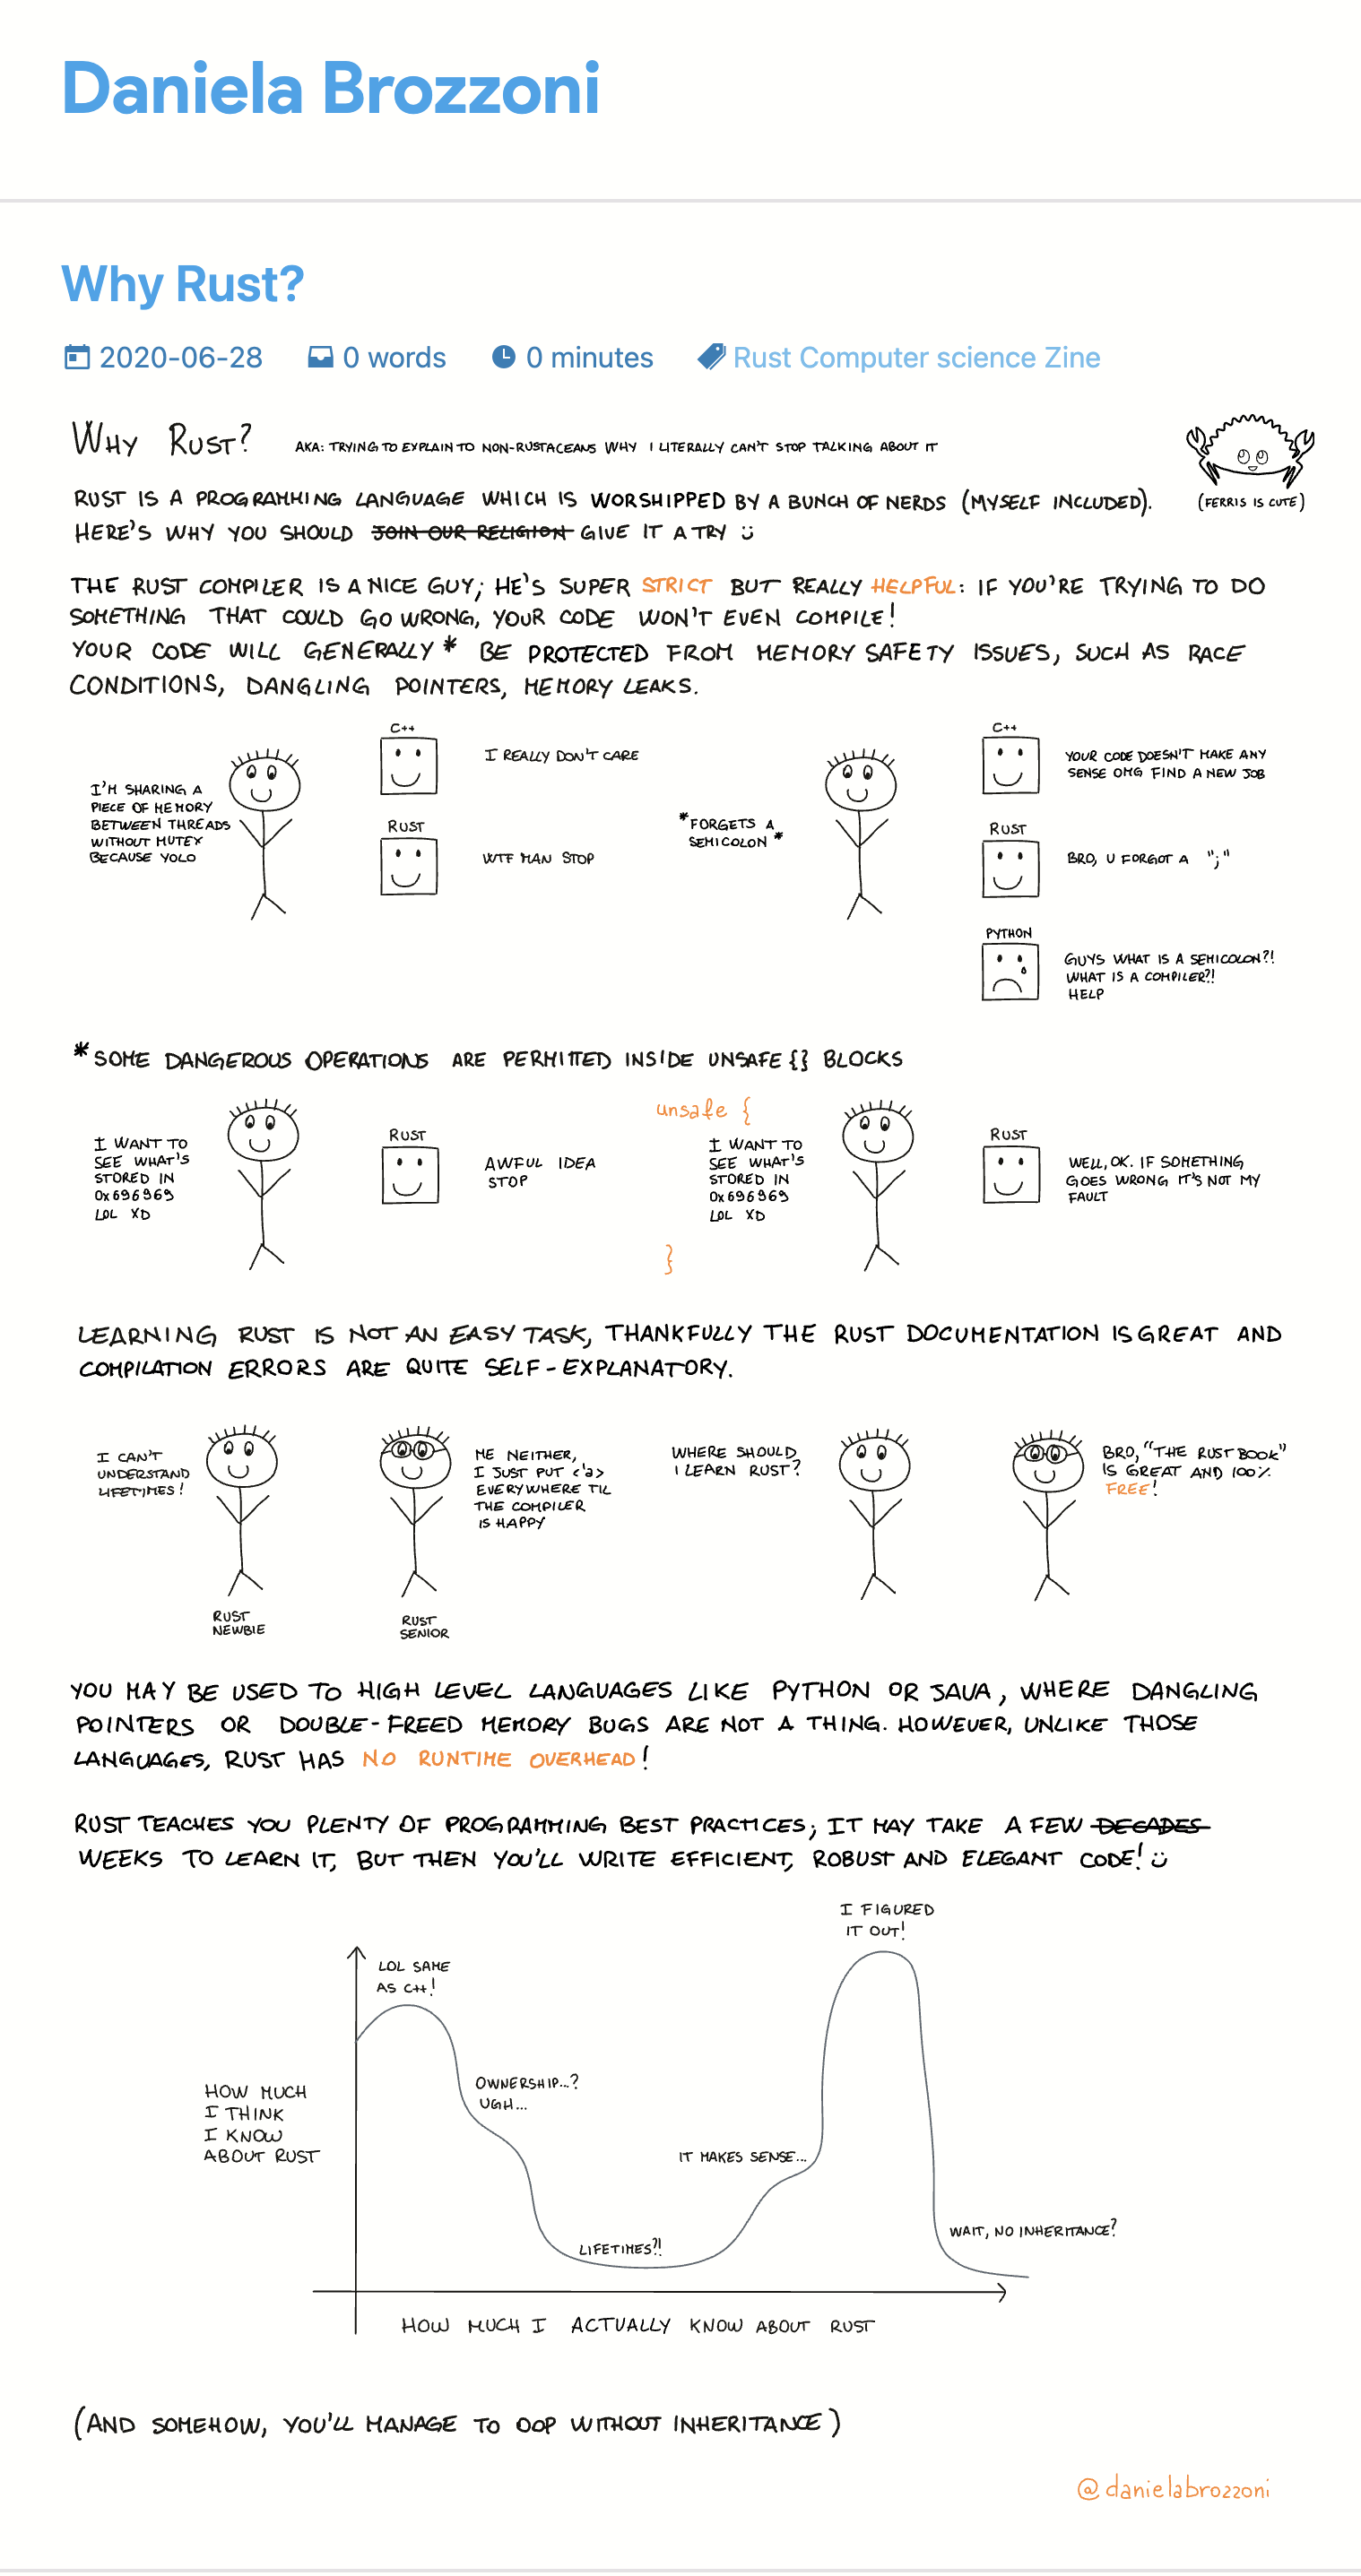 Daniela Brozzoni
Why Rust?
2020-06-28 0 words 0 minutes Rust Computer science Zine
WHY RUST? AKA: TRYING TO EXPLAIN TO NON-RUSTACEANS WHY I LITERALLY CAN'T STOP TALKING ABOUT IT
RUST IS A PROGRAMMING LANGUAGE WHICH IS WORSHIPPED BY A BUNCH OF NERDS (MYSELF INCLUDED).
(FERRIS IS CUTE)
HERE'S WHY YOU SHOULD JOIN OUR RELIGION GIVE IT A TRY :)
THE RUST COMPILER IS A NICE GUY; HE'S SUPER STRICT BUT REALLY HELPFUL: IF YOU'RE TRYING TO DO
SOMETHING THAT COULD GO WRONG, YOUR CODE WON'T EVEN COMPILE!
YOUR CODE WILL GENERALLY* BE PROTECTED FROM MEMORY SAFETY ISSUES, SUCH AS RACE
CONDITIONS, DANGLING POINTERS, MEMORY LEAKS.
I'M SHARING A
PIECE OF MEMORY
BETWEEN THREADS
WITHOUT MUTEX
BECAUSE YOLO
C++
I REALLY DON'T CARE
RUST
WTF MAN STOP
*FORGETS A
SEMICOLON*
C++
YOUR CODE DOESN'T MAKE ANY
SENSE OMG FIND A NEW JOB
RUST
BRO, U FORGOT A ";"
PYTHON
GUYS WHAT IS A SEMICOLON?!
WHAT IS A COMPILER?!
HELP
*SOME DANGEROUS OPERATIONS ARE PERMITTED INSIDE UNSAFE {} BLOCKS
I WANT TO
SEE WHAT'S
STORED IN
0x696969
LOL XD
RUST
AWFUL IDEA
STOP
unsafe {
I WANT TO
SEE WHAT'S
STORED IN
0x696969
LOL XD
}
RUST
WELL, OK. IF SOMETHING
GOES WRONG IT'S NOT MY
FAULT
LEARNING RUST IS NOT AN EASY TASK, THANKFULLY THE RUST DOCUMENTATION IS GREAT AND
COMPILATION ERRORS ARE QUITE SELF-EXPLANATORY.
I CAN'T
UNDERSTAND
LIFETIMES!
RUST
NEWBIE
ME NEITHER,
I JUST PUT <'a>
EVERYWHERE TIL
THE COMPILER
IS HAPPY
RUST
SENIOR
WHERE SHOULD
I LEARN RUST?
BRO, "THE RUST BOOK"
IS GREAT AND 100%
FREE!
YOU MAY BE USED TO HIGH LEVEL LANGUAGES LIKE PYTHON OR JAVA, WHERE DANGLING
POINTERS OR DOUBLE-FREED MEMORY BUGS ARE NOT A THING. HOWEVER, UNLIKE THOSE
LANGUAGES, RUST HAS NO RUNTIME OVERHEAD!
RUST TEACHES YOU PLENTY OF PROGRAMMING BEST PRACTICES; IT MAY TAKE A FEW DECADES
WEEKS TO LEARN IT, BUT THEN YOU'LL WRITE EFFICIENT, ROBUST AND ELEGANT CODE! :)
I FIGURED
IT OUT!
LOL SAME
AS C++!
HOW MUCH
I THINK
I KNOW
ABOUT RUST
OWNERSHIP...?
UGH...
IT MAKES SENSE...
LIFETIMES?!
WAIT, NO INHERITANCE?
HOW MUCH I ACTUALLY KNOW ABOUT RUST
(AND SOMEHOW, YOU'LL MANAGE TO OOP WITHOUT INHERITANCE)
@danielabrozzoni